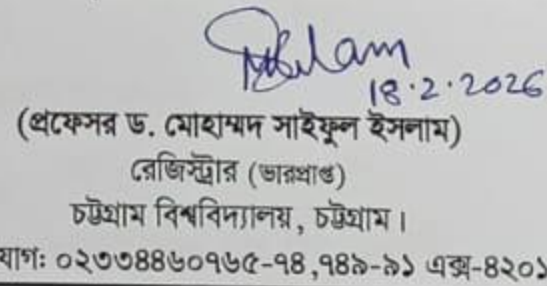 18.2.2026
(প্রফেসর ড. মোহাম্মদ সাইফুল ইসলাম)
রেজিস্ট্রার (ভারপ্রাপ্ত)
চট্টগ্রাম বিশ্ববিদ্যালয়, চট্টগ্রাম।
যোগঃ ০২৩৩৪৪৬০৭৬৫-৭৪,৭৪৯-৯১ এক্স-৪২০১